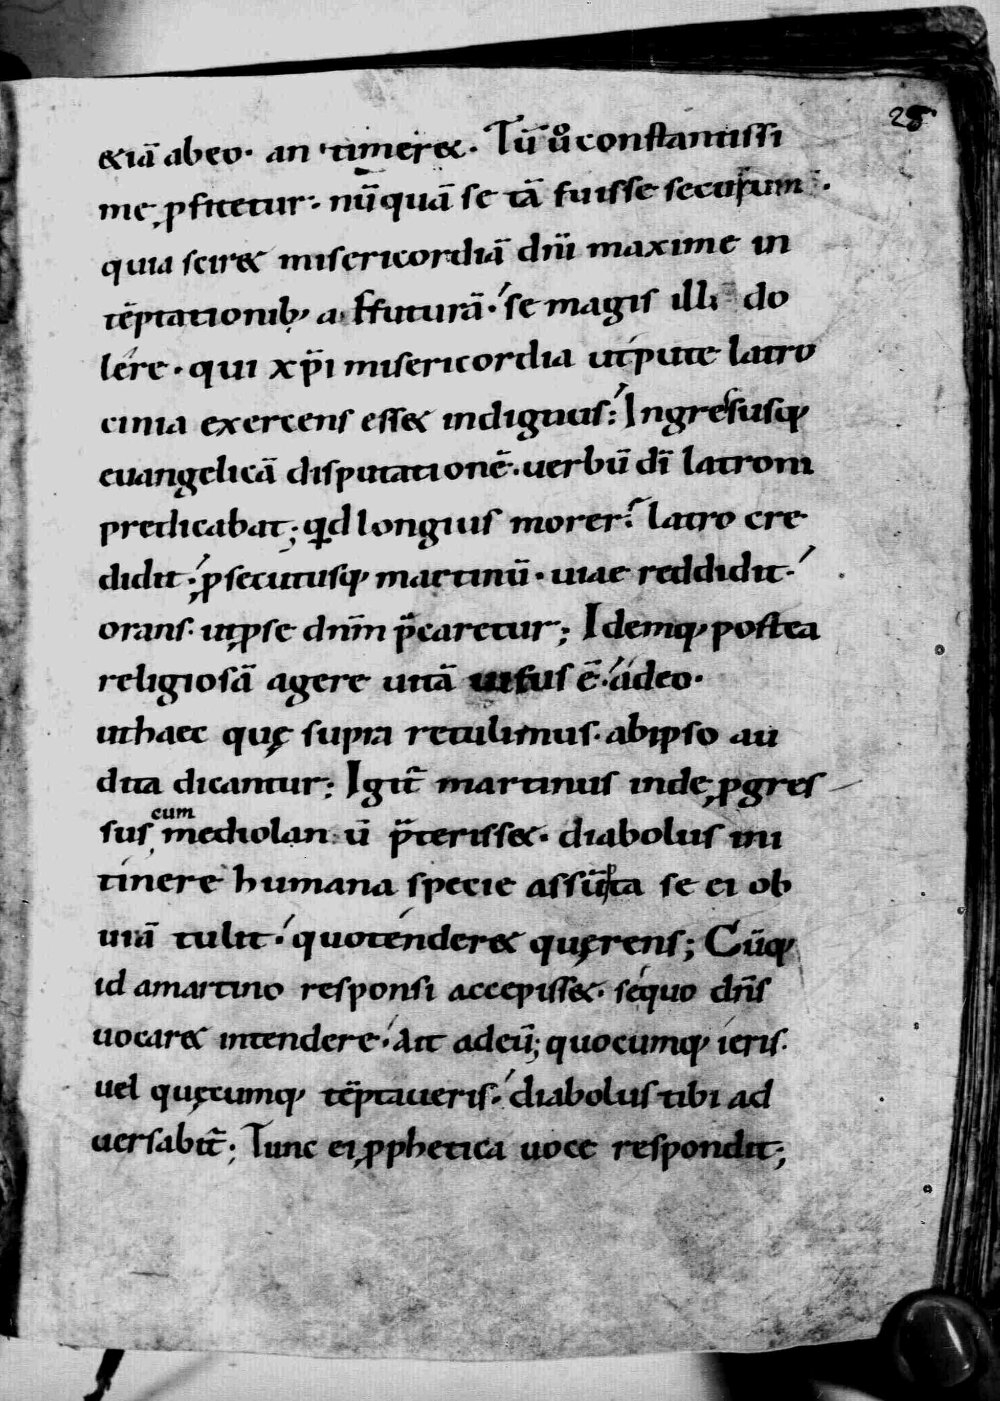 28
&iā abeo· an timer&· Tū u̾ constantissi
me ꝓfitetur· nūquā se tā fuisse securum·
quia scir& misericordiā dn̄i maxime in
tēptationib; affuturā· se magis illi do
lére· qui xp̄i misericordia utpute latro
cinia exercens ess& indignus· Ingressusq;
euangelicā disputationē· uerbū dī latroni
predicabat; qd longius morer̄· latro cre
didit· ꝓsecutusq; martinū· uiae reddidit·
orans· ut ꝓ se dn̄m p̄caretur; Idemq; postea
religiosā agere uitā uisus ē· ádeo·
ut haec quę supra retulimus· ab ipso au
dita dicantur; Igit̄ martinus inde ꝓgres
sus cum mediolan ū p̄teriss&· diabolus in i
tinere humana specie assūpta se ei ob
uiā tulit· quo ténder& quęrens; Cūq;
id a martino responsi accepiss&· sé quo dn̄s
uocar& intendere· Ait ad eū; quocumq; ieris·
uel quęcumq; tēptaueris· diabolus tibi ad
uersabit̄; Tunc ei ꝓphetica uoce respondit;